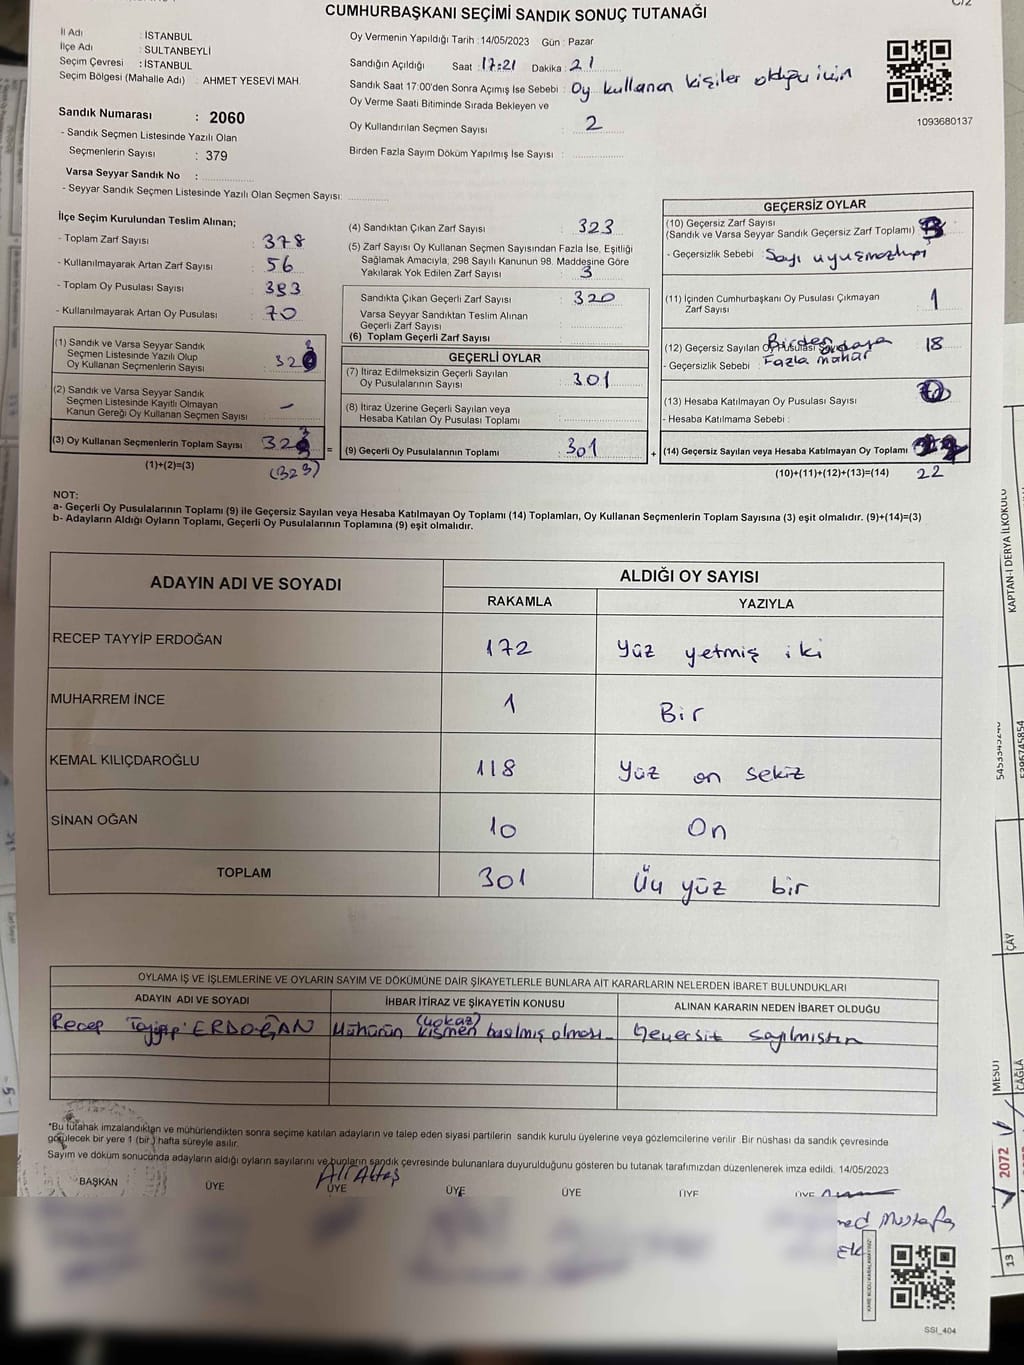 C/2
CUMHURBAŞKANI SEÇİMİ SANDIK SONUÇ TUTANAĞI
İl Adı : İSTANBUL
İlçe Adı : SULTANBEYLİ
Seçim Çevresi : İSTANBUL
Seçim Bölgesi (Mahalle Adı) : AHMET YESEVİ MAH.
Sandık Numarası : 2060
- Sandık Seçmen Listesinde Yazılı Olan
Seçmenlerin Sayısı : 379
Varsa Seyyar Sandık No :
- Seyyar Sandık Seçmen Listesinde Yazılı Olan Seçmen Sayısı:
Oy Vermenin Yapıldığı Tarih : 14/05/2023 Gün : Pazar
Sandığın Açıldığı Saat 17:21 Dakika : 21
Sandık Saat 17:00'den Sonra Açımış İse Sebebi : Oy kullanan kişiler olduğu için
Oy Verme Saati Bitiminde Sırada Bekleyen ve
Oy Kullandırılan Seçmen Sayısı : 2
Birden Fazla Sayım Döküm Yapılmış İse Sayısı :
1093680137
İlçe Seçim Kurulundan Teslim Alınan;
- Toplam Zarf Sayısı : 378
- Kullanılmayarak Artan Zarf Sayısı : 56
- Toplam Oy Pusulası Sayısı : 393
- Kullanılmayarak Artan Oy Pusulası : 70
(1) Sandık ve Varsa Seyyar Sandık
Seçmen Listesinde Yazılı Olup
Oy Kullanan Seçmenlerin Sayısı : 323
(2) Sandık ve Varsa Seyyar Sandık
Seçmen Listesinde Kayıtlı Olmayan
Kanun Gereği Oy Kullanan Seçmen Sayısı : -
(3) Oy Kullanan Seçmenlerin Toplam Sayısı : 323 =
(1)+(2)=(3) (323)
(4) Sandıktan Çıkan Zarf Sayısı : 323
(5) Zarf Sayısı Oy Kullanan Seçmen Sayısından Fazla İse, Eşitliği
Sağlamak Amacıyla, 298 Sayılı Kanunun 98. Maddesine Göre
Yakılarak Yok Edilen Zarf Sayısı : 3
Sandıkta Çıkan Geçerli Zarf Sayısı : 320
Varsa Seyyar Sandıktan Teslim Alınan
Geçerli Zarf Sayısı :
(6) Toplam Geçerli Zarf Sayısı :
GEÇERLİ OYLAR
(7) İtiraz Edilmeksizin Geçerli Sayılan
Oy Pusulalarının Sayısı : 301
(8) İtiraz Üzerine Geçerli Sayılan veya
Hesaba Katılan Oy Pusulası Toplamı :
(9) Geçerli Oy Pusulalarının Toplamı : 301 +
GEÇERSİZ OYLAR
(10) Geçersiz Zarf Sayısı
(Sandık ve Varsa Seyyar Sandık Geçersiz Zarf Toplamı) : 3
- Geçersizlik Sebebi : Sayı uyuşmazlığı
(11) İçinden Cumhurbaşkanı Oy Pusulası Çıkmayan
Zarf Sayısı : 1
(12) Geçersiz Sayılan Oy Pusulası Sayısı : 18
- Geçersizlik Sebebi : Birden Fazla mühür
(13) Hesaba Katılmayan Oy Pusulası Sayısı :
- Hesaba Katılmama Sebebi :
(14) Geçersiz Sayılan veya Hesaba Katılmayan Oy Toplamı :
(10)+(11)+(12)+(13)=(14) 22
NOT:
a- Geçerli Oy Pusulalarının Toplamı (9) ile Geçersiz Sayılan veya Hesaba Katılmayan Oy Toplamı (14) Toplamları, Oy Kullanan Seçmenlerin Toplam Sayısına (3) eşit olmalıdır. (9)+(14)=(3)
b- Adayların Aldığı Oyların Toplamı, Geçerli Oy Pusulalarının Toplamına (9) eşit olmalıdır.
ADAYIN ADI VE SOYADI ALDIĞI OY SAYISI
RAKAMLA YAZIYLA
RECEP TAYYİP ERDOĞAN 172 Yüz yetmiş iki
MUHARREM İNCE 1 Bir
KEMAL KILIÇDAROĞLU 118 Yüz on sekiz
SİNAN OĞAN 10 On
TOPLAM 301 Üç yüz bir
OYLAMA İŞ VE İŞLEMLERİNE VE OYLARIN SAYIM VE DÖKÜMÜNE DAİR ŞİKAYETLERLE BUNLARA AİT KARARLARIN NELERDEN İBARET BULUNDUKLARI
ADAYIN ADI VE SOYADI İHBAR İTİRAZ VE ŞİKAYETİN KONUSU ALINAN KARARIN NEDEN İBARET OLDUĞU
Recep Tayyip ERDOĞAN Mühürün kısmen basılmış olması Geçersiz sayılmıştır
*Bu tutanak imzalandıktan ve mühürlendikten sonra seçime katılan adayların ve talep eden siyasi partilerin sandık kurulu üyelerine veya gözlemcilerine verilir .Bir nüshası da sandık çevresinde
görülecek bir yere 1 (bir ) hafta süreyle asılır.
Sayım ve döküm sonucunda adayların aldığı oyların sayılarını ve bunların sandık çevresinde bulunanlara duyurulduğunu gösteren bu tutanak tarafımızdan düzenlenerek imza edildi. 14/05/2023
BAŞKAN ÜYE ÜYE ÜYE ÜYE ÜYE ÜYE
Ali Aktaş
Mustafa
SSI_404
KAPTAN-I DERYA İLKOKULU
ÇAY
MESUT
ÇAĞLA
2072
13